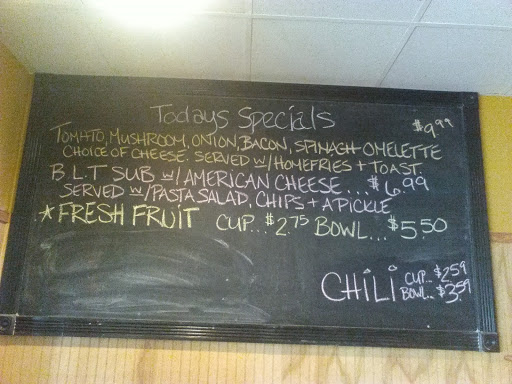 Todays Specials
$9.99
TOMATO, MUSHROOM, ONION, BACON, SPINACH OMELETTE
CHOICE OF CHEESE. SERVED W/HOMEFRIES + TOAST.
B.L.T SUB W/AMERICAN CHEESE...$6.99
SERVED W/PASTA SALAD, CHIPS + A PICKLE
*FRESH FRUIT CUP...$2.75 BOWL...$5.50
CHILI CUP...$2.59
BOWL...$3.59